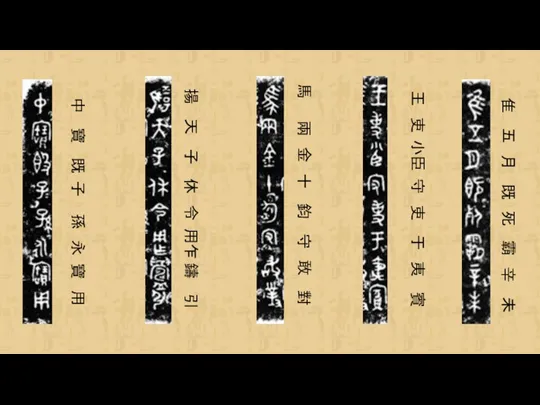 隹五月既死霸辛未
王吏小臣守吏于夷賓
馬兩金十鈞守敢對
揚天子休令用乍鑄引
中寶既子孫永寶用